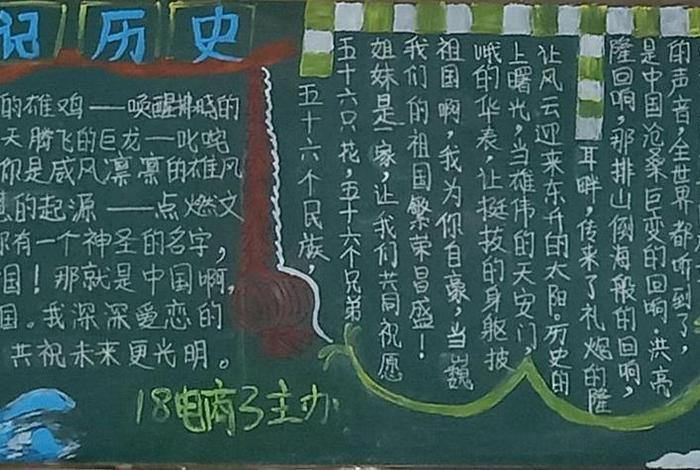 记历史
的雄鸡——唤醒拂晓的
天腾飞的巨龙—叱咤
你是威风凛凛的雄风
的起源——点燃文
有一个神圣的名字，
国！那就是中国啊，
国。我深深爱恋的
共祝未来更光明。
18电商3主办
五十六个民族，
五十六只花，五十六个兄弟
姐妹是一家，让我们共同祝愿
我们的祖国繁荣昌盛！
祖国啊，我为你自豪，当巍
峨的华表，让挺拔的身躯披
上曙光，当雄伟的天安门，
让风云迎来东升的太阳。历史的
耳畔，传来了礼炮的隆
隆回响，那排山倒海般的回响，
是中国沧桑巨变的回响。洪亮
的声音，全世界都听到了，